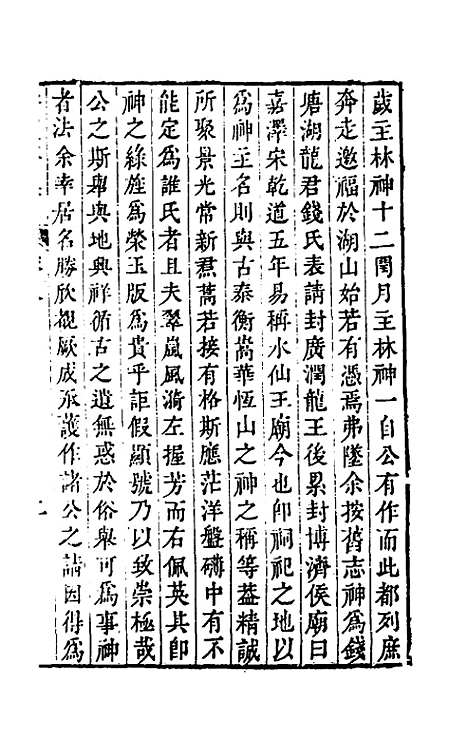 歲主林神十二閏月主林神一自公有作而此都列庶
奔走邀福於湖山始若有憑焉弗墜余按舊志神爲錢
塘湖龍君錢氏表請封廣潤龍王後累封博濟侯廟曰
嘉澤宋乾道五年易稱水仙王廟今也卽祠祀之地以
爲神主名則與古泰衡嵩華恆山之神之稱等葢精誠
所聚景光常新焄蒿若接有格斯應茫洋盤礴中有不
能定爲誰氏者且夫翠嵐風漪左握芳而右佩英其卽
神之綠旌爲榮玉版爲貴乎詎假顯號乃以致崇極哉
公之斯舉與地興祥循古之遺無惑於俗舉可爲事神
者法余幸居名勝欣觀厥成承諉作諸公之請因得爲